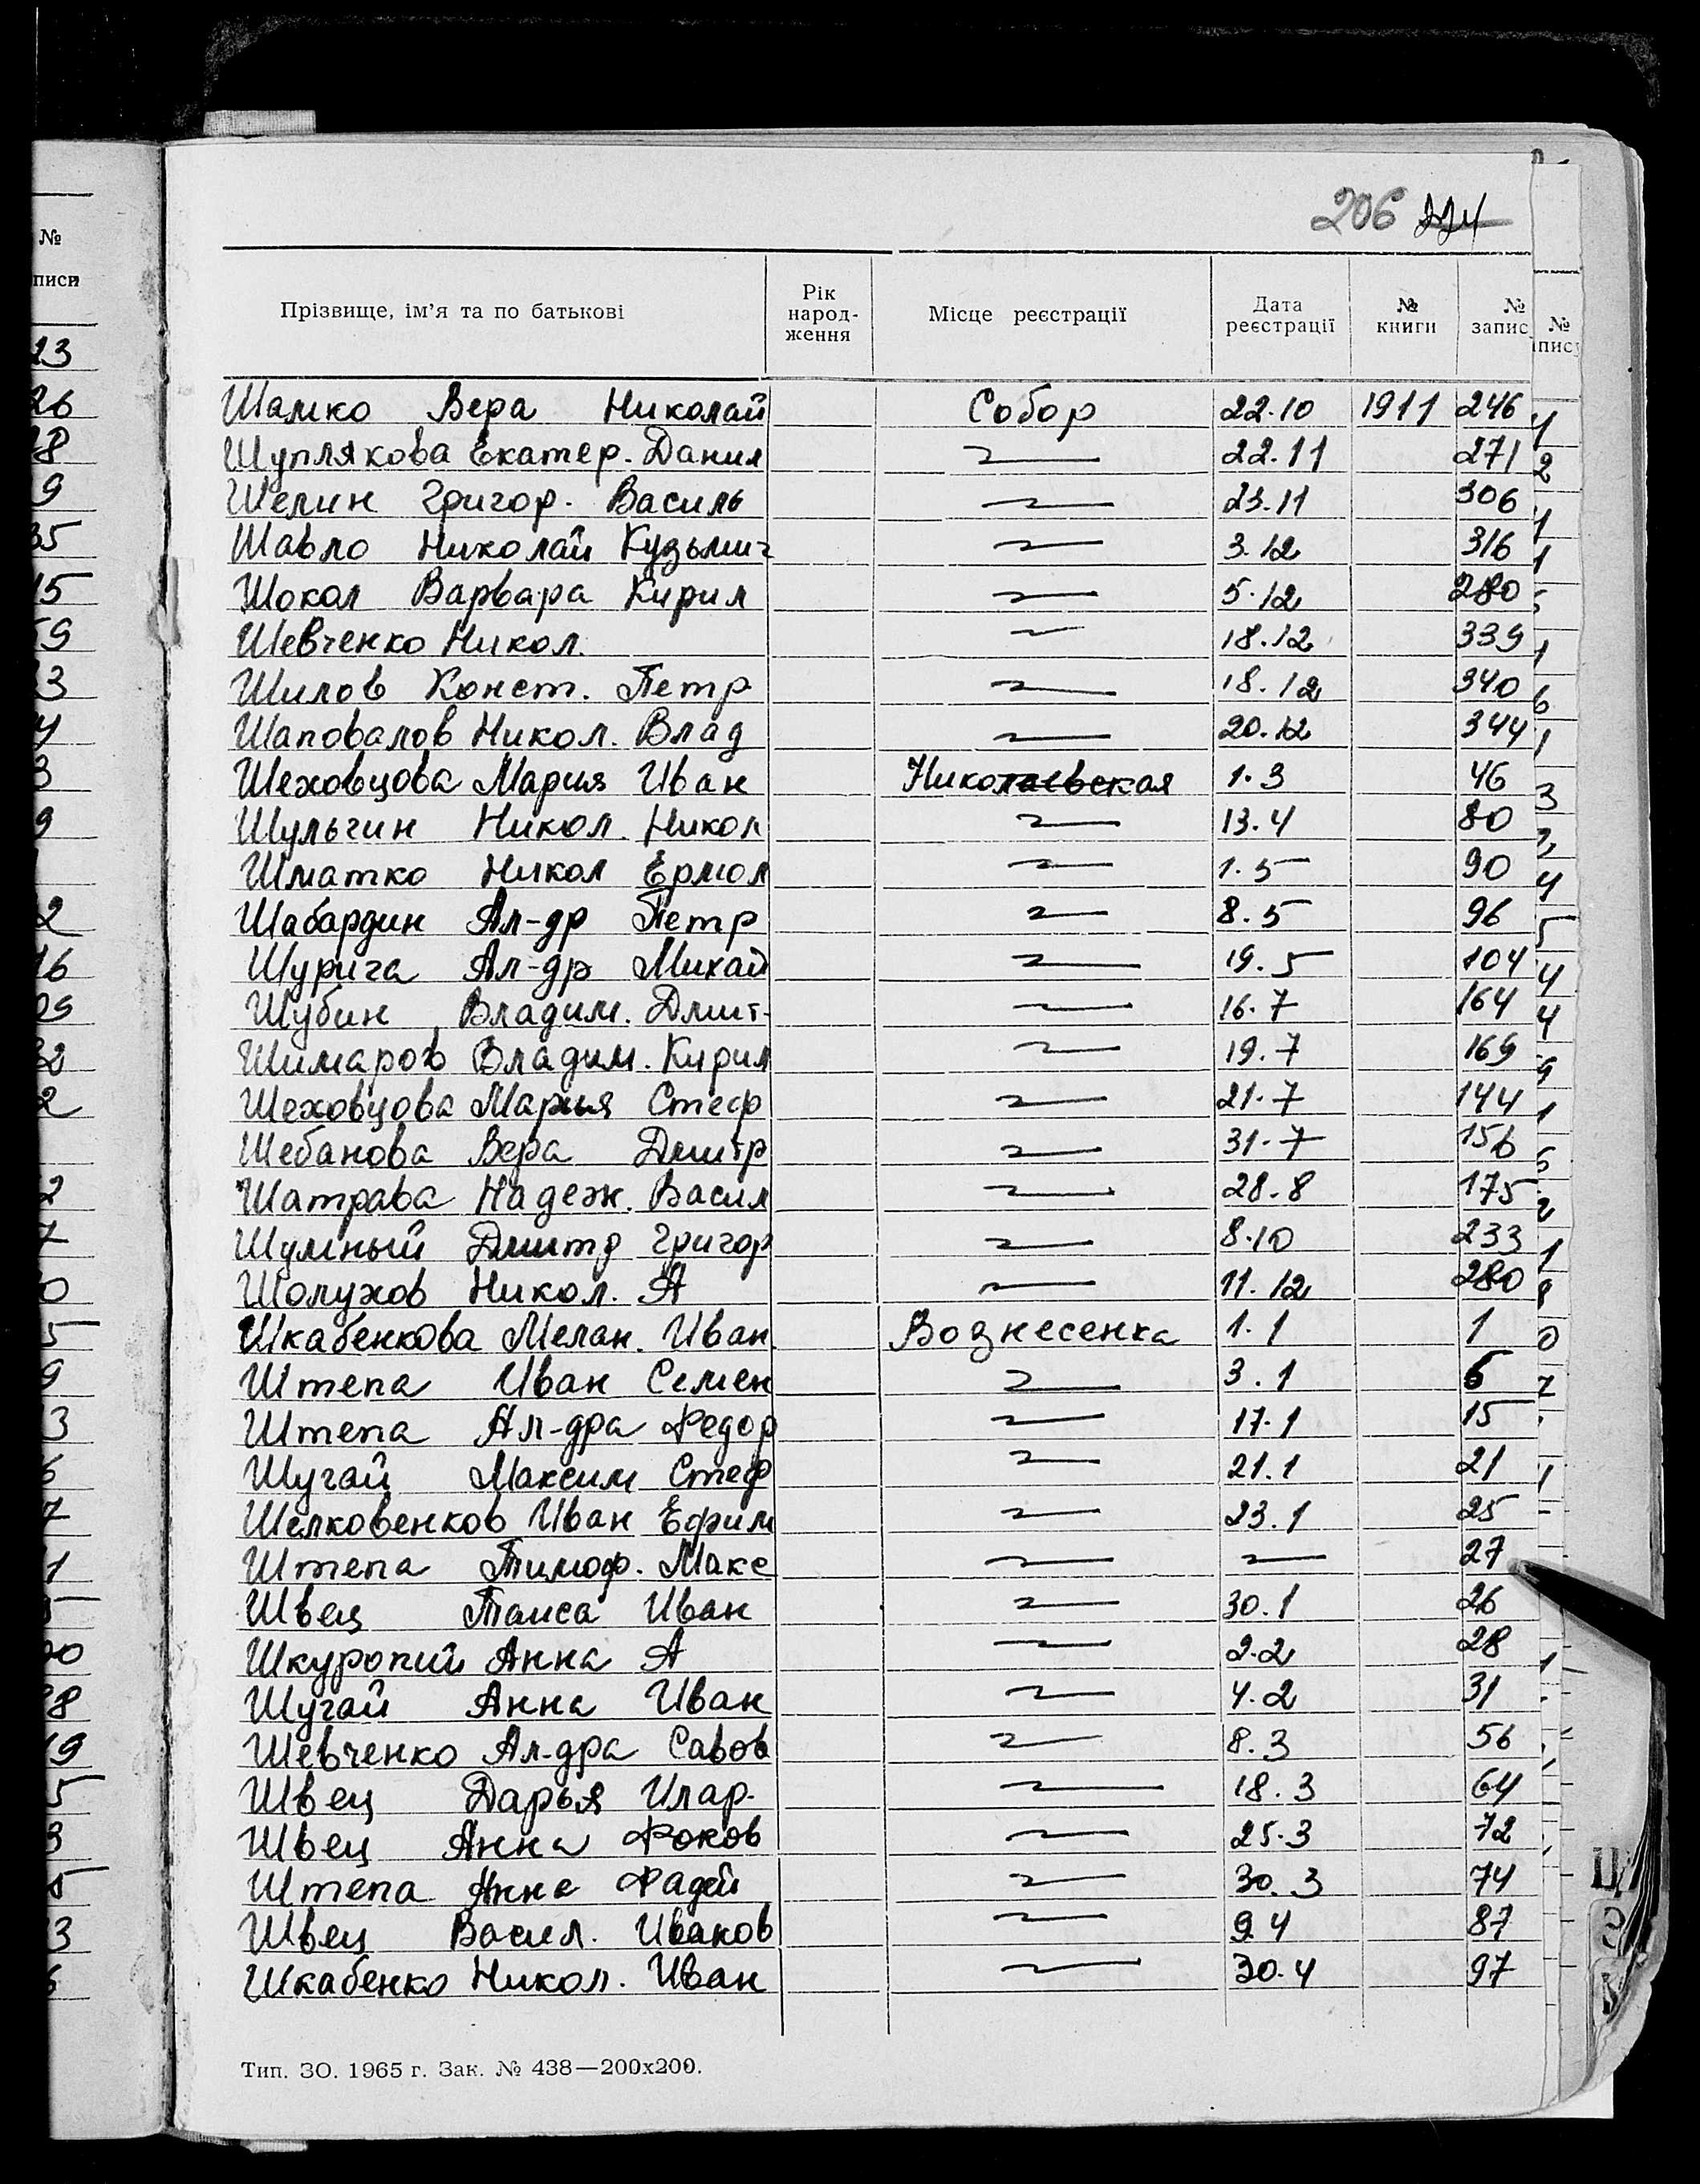 206 224
Прізвище, ім'я та по батькові Рік народ- ження Місце реєстрації Дата реєстрації № книги № запис
Шамко Вера Николай Собор 22.10 1911 246
Шуплякова Екатер. Данил 22.11 271
Шелин Григор. Василь 23.11 306
Шавло Николай Кузьмич 3.12 316
Шокол Варвара Кирил 5.12 280
Шевченко Никол. 18.12 339
Шилов Конст. Петр 18.12 340
Шаповалов Никол. Влад 20.12 344
Шеховцова Мария Иван Николаевская 1.3 46
Шульгин Никол. Никол 13.4 80
Шматко Никол Ермол 1.5 90
Шабардин Ал-др Петр 8.5 96
Шурига Ал-др Михай 19.5 104
Шубин Владим. Дмит. 16.7 164
Шимаров Владим. Кирил 19.7 169
Шеховцова Мария Стеф 21.7 144
Шебанова Вера Дмитр 31.7 156
Шатрава Надеж. Васил 28.8 175
Шумный Дмитр Григор 8.10 233
Шолухов Никол. А 11.12 280
Шкабенкова Мелан. Иван. Вознесенка 1.1 1
Штепа Иван Семен 3.1 6
Штепа Ал-дра Федор 17.1 15
Шугай Максим Стеф 21.1 21
Шелковенков Иван Ефим 23.1 25
Штепа Тимоф. Макс 27
Швец Таиса Иван 30.1 26
Шкуропий Анна А 2.2 28
Шугай Анна Иван 4.2 31
Шевченко Ал-дра Савов 8.3 56
Швец Дарья Илар. 18.3 64
Швец Анна Фоков 25.3 72
Штепа Анна Фадей 30.3 74
Швец Васил. Иваков 9.4 87
Шкабенко Никол. Иван 30.4 97
Тип. ЗО. 1965 г. Зак. № 438—200х200.